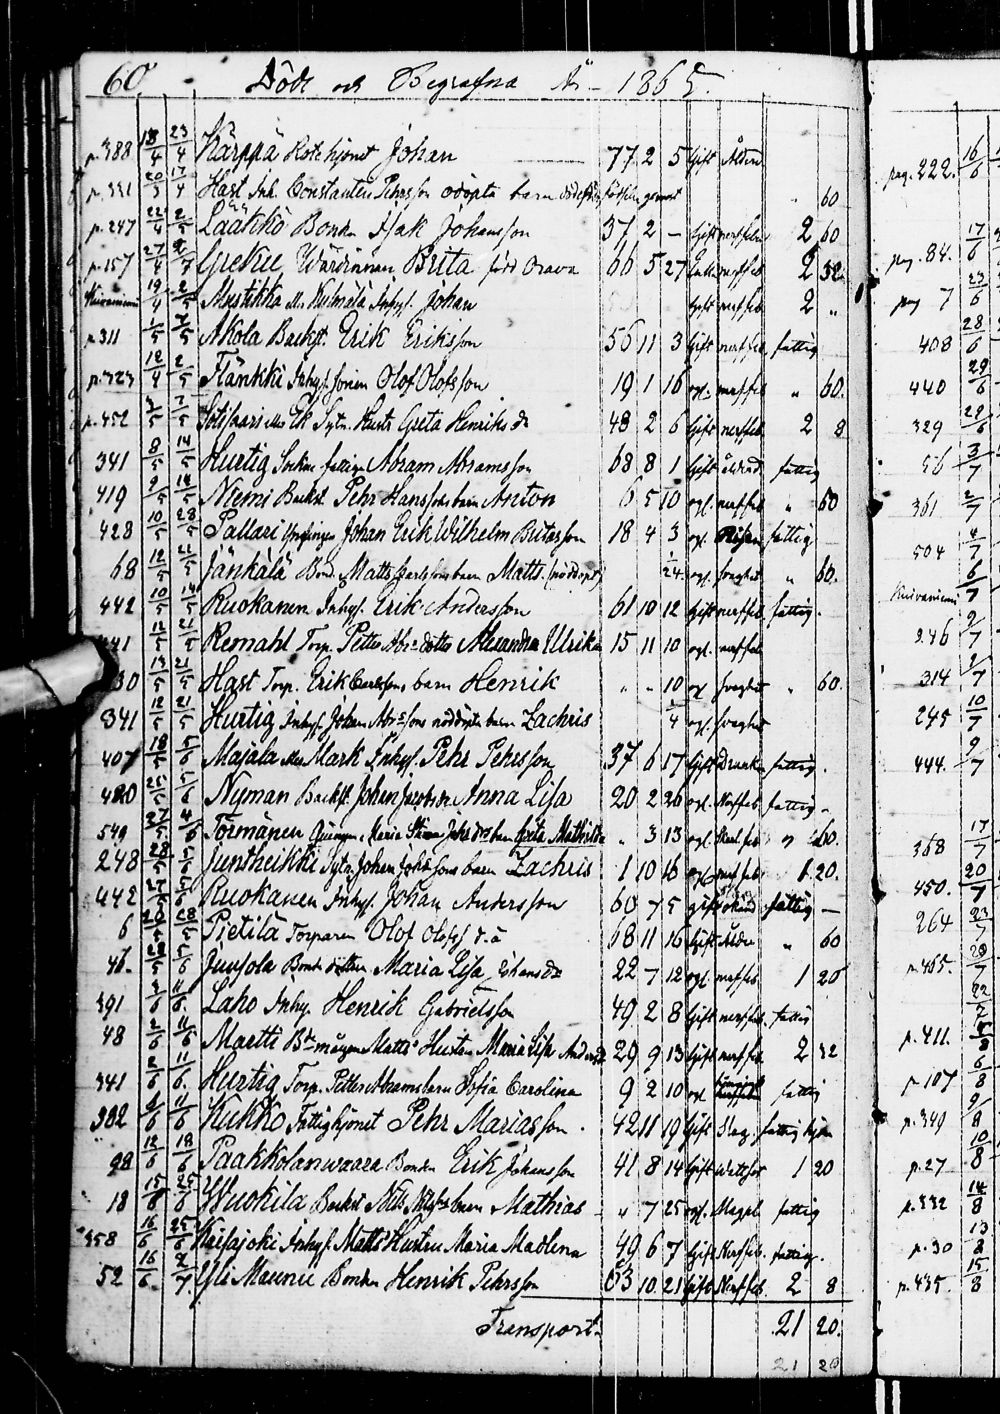 60 Döde och Begrafna År 1865.
p. 388 18/4 23/4 Karppa Rotehjonet Johan 77 2 5 Gift Ålderd.
p. 331 20/3 17/4 Hast Inh. Constantin Pehrsson odöpta barn 60
p. 247 22/4 2/5 Lääkkö Bonden Isak Johansson 37 2 - Gift nerffeber 2 60
p. 157 27/4 Greku, Wärdinnan Brita född Orava 66 5 27 Enka nerffeb 2 32
Kuivaniemi 19/4 2/5 Mustikka Johan Gift nerffeb 2 "
p. 311 1/5 Akola Backst. Erik Eriksson 56 11 3 Gift nerffeb fattig
p. 323 12/4 2/5 Flänkki Inhys. sonen Olof Olofsson 19 1 16 ogi. nerffeb " 60.
p. 452 3/5 7/5 Sotisaari Ek Sytn. Hustr Greta Henriks dr 48 2 6 Gift nerffeb 2 8
341 8/5 14/5 Hurtig Socken fattige Abram Abramsson 68 8 1 Gift ålderd fattig
419 9/5 14/5 Niemi Backst. Pehr Hanssons barn Anton 6 5 10 ogi. nerffeb " 60
428 10/5 28/5 Pallari Ynglingen Johan Erik Wilhelm Britasson 18 4 3 ogi. fattig
68 12/5 21/5 Jänkälä Bond. Matts Carlssons barn Matts. (nöddöpt) 1/24 ogi. svaghet " 60.
442 10/5 14/5 Ruokanen Inhys. Erik Andersson 61 10 12 Gift nerffeb fattig.
341 12/5 21/5 Remahl Torp. Petter Abr. dotter Alexandra Ulrika 15 11 10 ogi. nerffeb
30 14/5 21/5 Hast Torp. Erik Carlssons barn Henrik " " 10 ogi svaghet " 60.
341 12/5 21/5 Hurtig Inhys. Johan Abr:ssons nöddöpte barn Zachris 1/4 ogi. svaghet
407 18/5 5/6 Majala Mark Inhys. Pehr Pehrsson 37 6 17 Gift Drunkn fattig.
420 25/5 5/6 Nyman Backst. Johan Jacobs dr Anna Lisa 20 2 26 ogi. Nerffeb fattig -
549 27/5 4/6 Törmänen Qvinnan Maria Stina Johs drs barn Greta Mathilda " 3 13 ogi. " 60.
248 28/5 5/6 Juntheikki Sytn. Johan Johssons barn Zachris 1 10 16 ogi nerffeb 1 20.
442 27/5 5/6 Ruokanen Inhys. Johan Andersson 60 7 5 gift okänd fattig -
6 20/5 28/5 Pietilä Torparen Olof Olofss d.ä 68 11 16 Gift Ålder " 60
46. 28/5 5/6 Juujola Bond dottren Maria Lisa Johans dr 22 7 12 ogi. nerffeb 1 20
391 3/6 11/6. Laho Inhys. Henrik Gabrielsson 49 2 8 Gift nerffeb fattig
48 2/6 11/6 Martti B:de mågen Matts' Hustru Maria Lisa Anders dr 29 9 13 Gift nerffeb 2 32
341 2/6 11/6. Hurtig Torp. Petter Abramss barn Sofia Carolina 9 2 10 ogi fattig
382 4/6 11/6 Kuhko Fattighjonet Pehr Mariasson. 42 11 19 Gift Slag. fattighjon
98 12/6 18/6 Paakkolanwaara Bonden Erik Johansson 41 8 14 Gift Wattsot 1 20
18 15/6 25/6 Wuokila Backst. Nils Nilss barn Mathias " 7 25 ogi. Magpl. fattig
358 16/6 25/6 Kaisajoki Inhys. Matts' Hustru Maria Madlena 49 6 7 Gift Nerffeb. fattig.
52 16/6. 2/7. Yli Maunu Bonden Henrik Pehrsson 63 10 21 Gift Nerffeb 2 8
Transport 21 20.
21 20
pag. 222. 16/6
pag. 84. 17/6
pag 7 23/6
408 28/6
440 29/6
329 28/6
56 3/7
361 2/7
504 4/7
Kuivaniemi 6/7
246 2/7
314 7/7
245 10/7
444. 9/7
368 17/7
450. 20/7
264 23/7
p. 465. 20/7
22/7
p. 411.
p 107 6/8
p. 349 9/8
p. 27 10/8
p. 332 14/8
p. 30 13/8
p. 435. 15/8